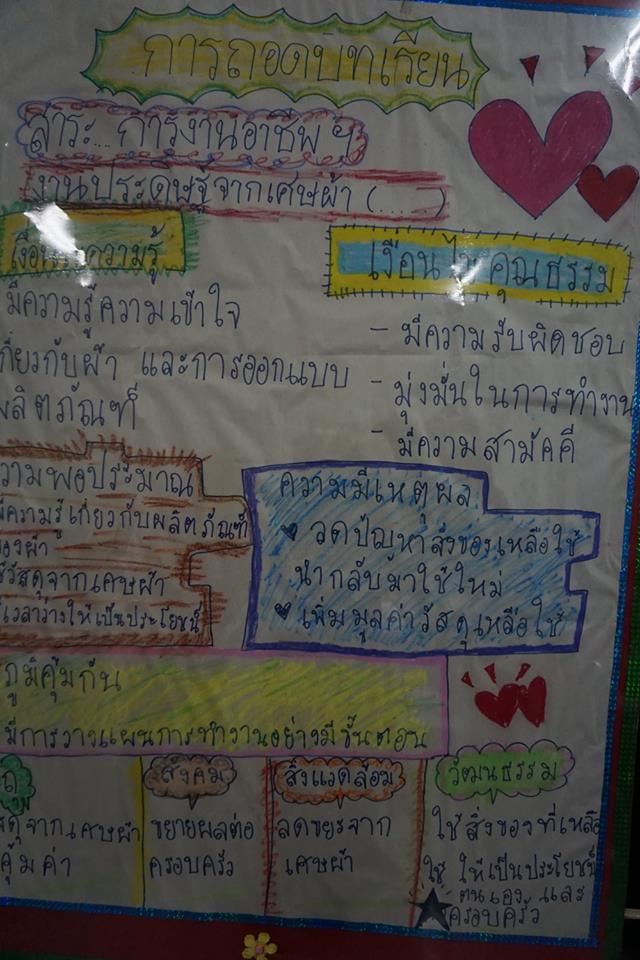 การถอดบทเรียน
สาระ... การงานอาชีพ ฯ
งานประดิษฐ์จากเศษผ้า (......)
เงื่อนไขความรู้
มีความรู้ความเข้าใจ
เกี่ยวกับผ้า และการออกแบบ
ผลิตภัณฑ์
เงื่อนไขคุณธรรม
- มีความรับผิดชอบ
- มุ่งมั่นในการทำงาน
- มีความสามัคคี
ความพอประมาณ
มีความรู้เกี่ยวกับผลิตภัณฑ์
ของผ้า
วัสดุจากเศษผ้า
เวลาว่างให้เป็นประโยชน์
ความมีเหตุผล
ลดปัญหาสิ่งของเหลือใช้
นำกลับมาใช้ใหม่
เพิ่มมูลค่าวัสดุเหลือใช้
ภูมิคุ้มกัน
มีการวางแผนการทำงานอย่างมีขั้นตอน
จากเศษผ้า
คุ้มค่า
สังคม
ขยายผลต่อ
ครอบครัว
สิ่งแวดล้อม
ลดขยะจาก
เศษผ้า
วัฒนธรรม
ใช้สิ่งของที่เหลือ
ใช้ ให้เป็นประโยชน์
ตนเอง และ
ครอบครัว